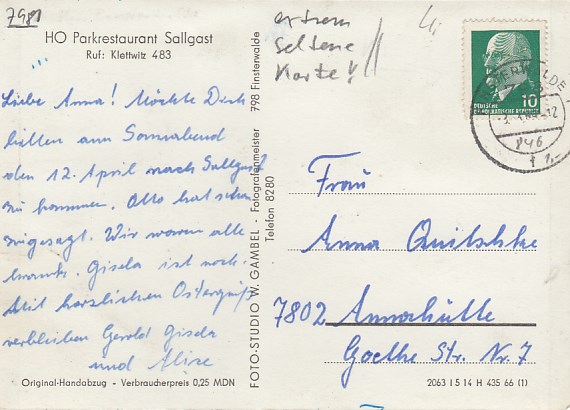 7981
HO Parkrestaurant Sallgast
Ruf: Klettwitz 483
Liebe Anna! Möchte Dich
bitten am Sonnabend
den 12. April nach Sallgast
zu kommen. Otto hat schon
zugesagt. Wir waren alle
krank. Gisela ist noch.
Mit herzlichen Ostergrüß
verbleiben Gerold Gisela
und Alise
Original-Handabzug - Verbraucherpreis 0,25 MDN
FOTO-STUDIO W. GAMBEL - Fotografenmeister 798 Finsterwalde
Telefon 8280
extrem
seltene
Karte!!
10
DEUTSCHE
DEMOKRATISCHE REPUBLIK
Frau
Anna Quitschke
7802 Annahütte
Goethe Str. Nr. 7
2063 I 5 14 H 435 66 (1)